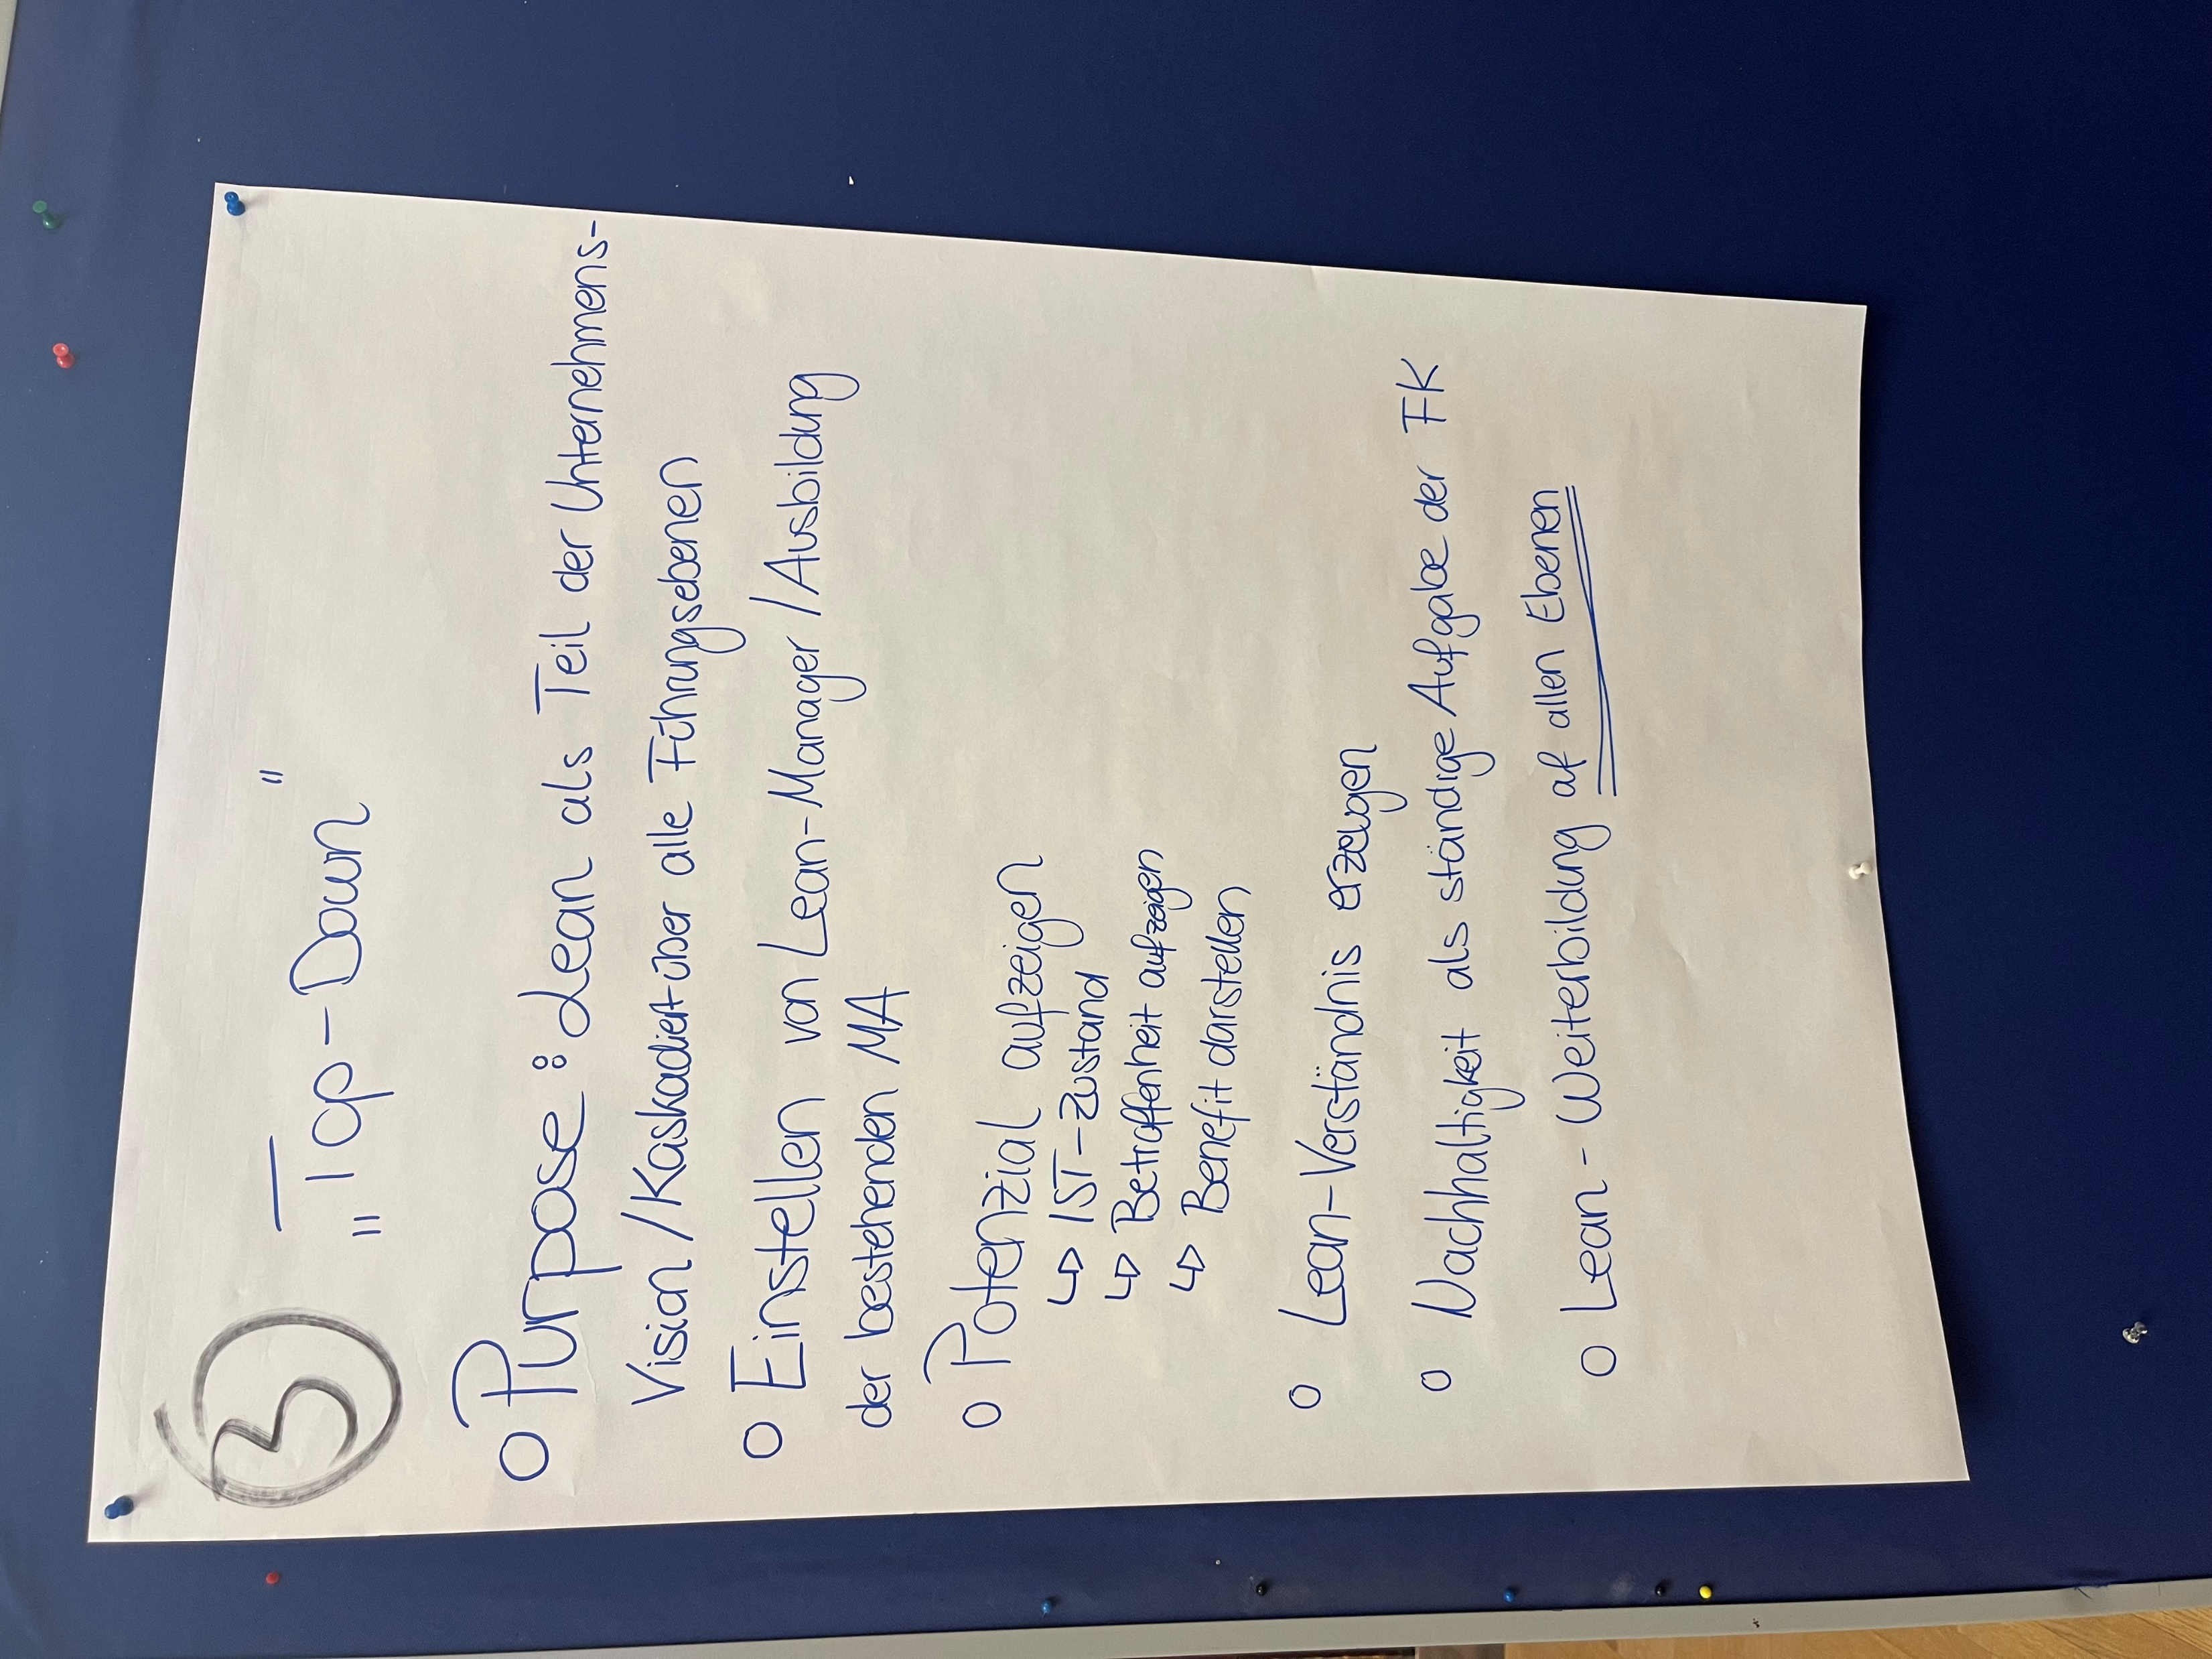 ③ „Top-Down"
o Purpose: Lean als Teil der Unternehmens-
Vision/Kaskadiert über alle Führungsebenen
o Einstellen von Lean-Manager/Ausbildung
der bestehenden MA
o Potenzial aufzeigen
↳ IST-Zustand
↳ Betroffenheit aufzeigen
↳ Benefit darstellen
o Lean-Verständnis erzeugen
o Nachhaltigkeit als ständige Aufgabe der FK
o Lean-Weiterbildung af allen Ebenen